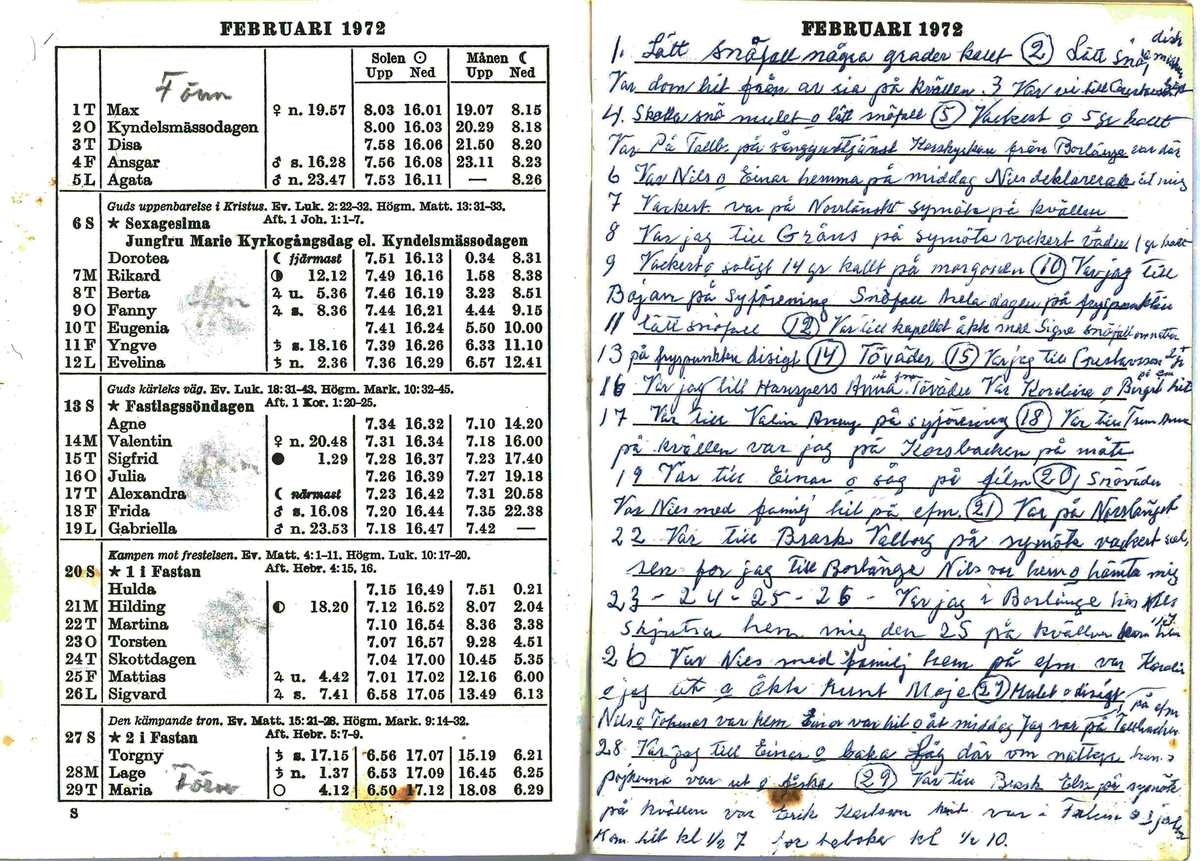 FEBRUARI 1972
Solen ☉ Månen ☾
Upp Ned Upp Ned
1 T Max ♀ n. 19.57 8.03 16.01 19.07 8.15
2 O Kyndelsmässodagen 8.00 16.03 20.29 8.18
3 T Disa 7.58 16.06 21.50 8.20
4 F Ansgar ♂ s. 16.28 7.56 16.08 23.11 8.23
5 L Agata ♂ n. 23.47 7.53 16.11 — 8.26
Guds uppenbarelse i Kristus. Ev. Luk. 2:22-32. Högm. Matt. 13:31-33.
6 S ★ Sexagesima Aft. 1 Joh. 1:1-7.
Jungfru Marie Kyrkogångsdag el. Kyndelsmässodagen
Dorotea ☾ fjärmast 7.51 16.13 0.34 8.31
7 M Rikard ◑ 12.12 7.49 16.16 1.58 8.38
8 T Berta ♃ u. 5.36 7.46 16.19 3.23 8.51
9 O Fanny ♃ s. 8.36 7.44 16.21 4.44 9.15
10 T Eugenia 7.41 16.24 5.50 10.00
11 F Yngve ♄ s. 18.16 7.39 16.26 6.33 11.10
12 L Evelina ♄ n. 2.36 7.36 16.29 6.57 12.41
Guds kärleks väg. Ev. Luk. 18:31-43. Högm. Mark. 10:32-45.
13 S ★ Fastlagssöndagen Aft. 1 Kor. 1:20-25.
Agne 7.34 16.32 7.10 14.20
14 M Valentin ♀ n. 20.48 7.31 16.34 7.18 16.00
15 T Sigfrid ● 1.29 7.28 16.37 7.23 17.40
16 O Julia 7.26 16.39 7.27 19.18
17 T Alexandra ☾ närmast 7.23 16.42 7.31 20.58
18 F Frida ♂ s. 16.08 7.20 16.44 7.35 22.38
19 L Gabriella ♂ n. 23.53 7.18 16.47 7.42 —
Kampen mot frestelsen. Ev. Matt. 4:1-11. Högm. Luk. 10:17-20.
20 S ★ 1 i Fastan Aft. Hebr. 4:15, 16.
Hulda 7.15 16.49 7.51 0.21
21 M Hilding ◐ 18.20 7.12 16.52 8.07 2.04
22 T Martina 7.10 16.54 8.36 3.38
23 O Torsten 7.07 16.57 9.28 4.51
24 T Skottdagen 7.04 17.00 10.45 5.35
25 F Mattias ♃ u. 4.42 7.01 17.02 12.16 6.00
26 L Sigvard ♃ s. 7.41 6.58 17.05 13.49 6.13
Den kämpande tron. Ev. Matt. 15:21-28. Högm. Mark. 9:14-32.
27 S ★ 2 i Fastan Aft. Hebr. 5:7-9.
Torgny ♄ s. 17.15 6.56 17.07 15.19 6.21
28 M Lage ♄ n. 1.37 6.53 17.09 16.45 6.25
29 T Maria ○ 4.12 6.50 17.12 18.08 6.29
S
FEBRUARI 1972
1. Lätt snöfall några grader kallt (2) Lätt snö
Var dom hit från på kvällen. 3 Var vi till
4. Skolla snö mulet o lätt snöfall (5) Vackert o 5 gr kallt
Var På Tallb. på från Borlänge var där
6 Var Nils o Einar hemma på middag Nils deklarerade åt mig
7 Vackert. var på Norrlänskt symöte på kvällen
8 Var jag till Gråns på symöte vackert väder 1 gr kallt
9 Vackert o soligt 14 gr kallt på morgonen (10) Var jag till
Bojan på syförening Snöfall hela dagen på fryspunkten
11 lätt snöfall (12) Var till kapellet åkte med Signe snöfall om natten
13 på fryspunkten disigt (14) Töväder (15) Var jag till Gustavsson
16 Var jag till Hanspers Anna. Töväder Var o Birgit hit
17 Var till Valin på syförening (18) Var till
på kvällen var jag på Korsbacken på möte
19 Var till Einar o såg på film (20) Snöväder
Var Nils med familj hit på efm. (21) Var på Norrlänsk
22 Var till Brask Valborg på symöte vackert
sen for jag till Borlänge Nils var hem o hämta mig
23 - 24 - 25 - 26 - Var jag i Borlänge hos Nils
skjutsa hem mig den 25 på kvällen
26 Var Nils med familj hem på efm var
o jag ut o åkte runt (27) Mulet o disigt
Nils o Tohmas var hem Einar var hit o åt middag Jag var på efm
28 Var jag till Einar o baka låg där om natten hans
pojkarna var ut o (29) Var till Brask Elsa på symöte
på kvällen var Erik Karlsson hit var i Falun
Kom hit kl 1/2 7. for tebaka kl 1/2 10.